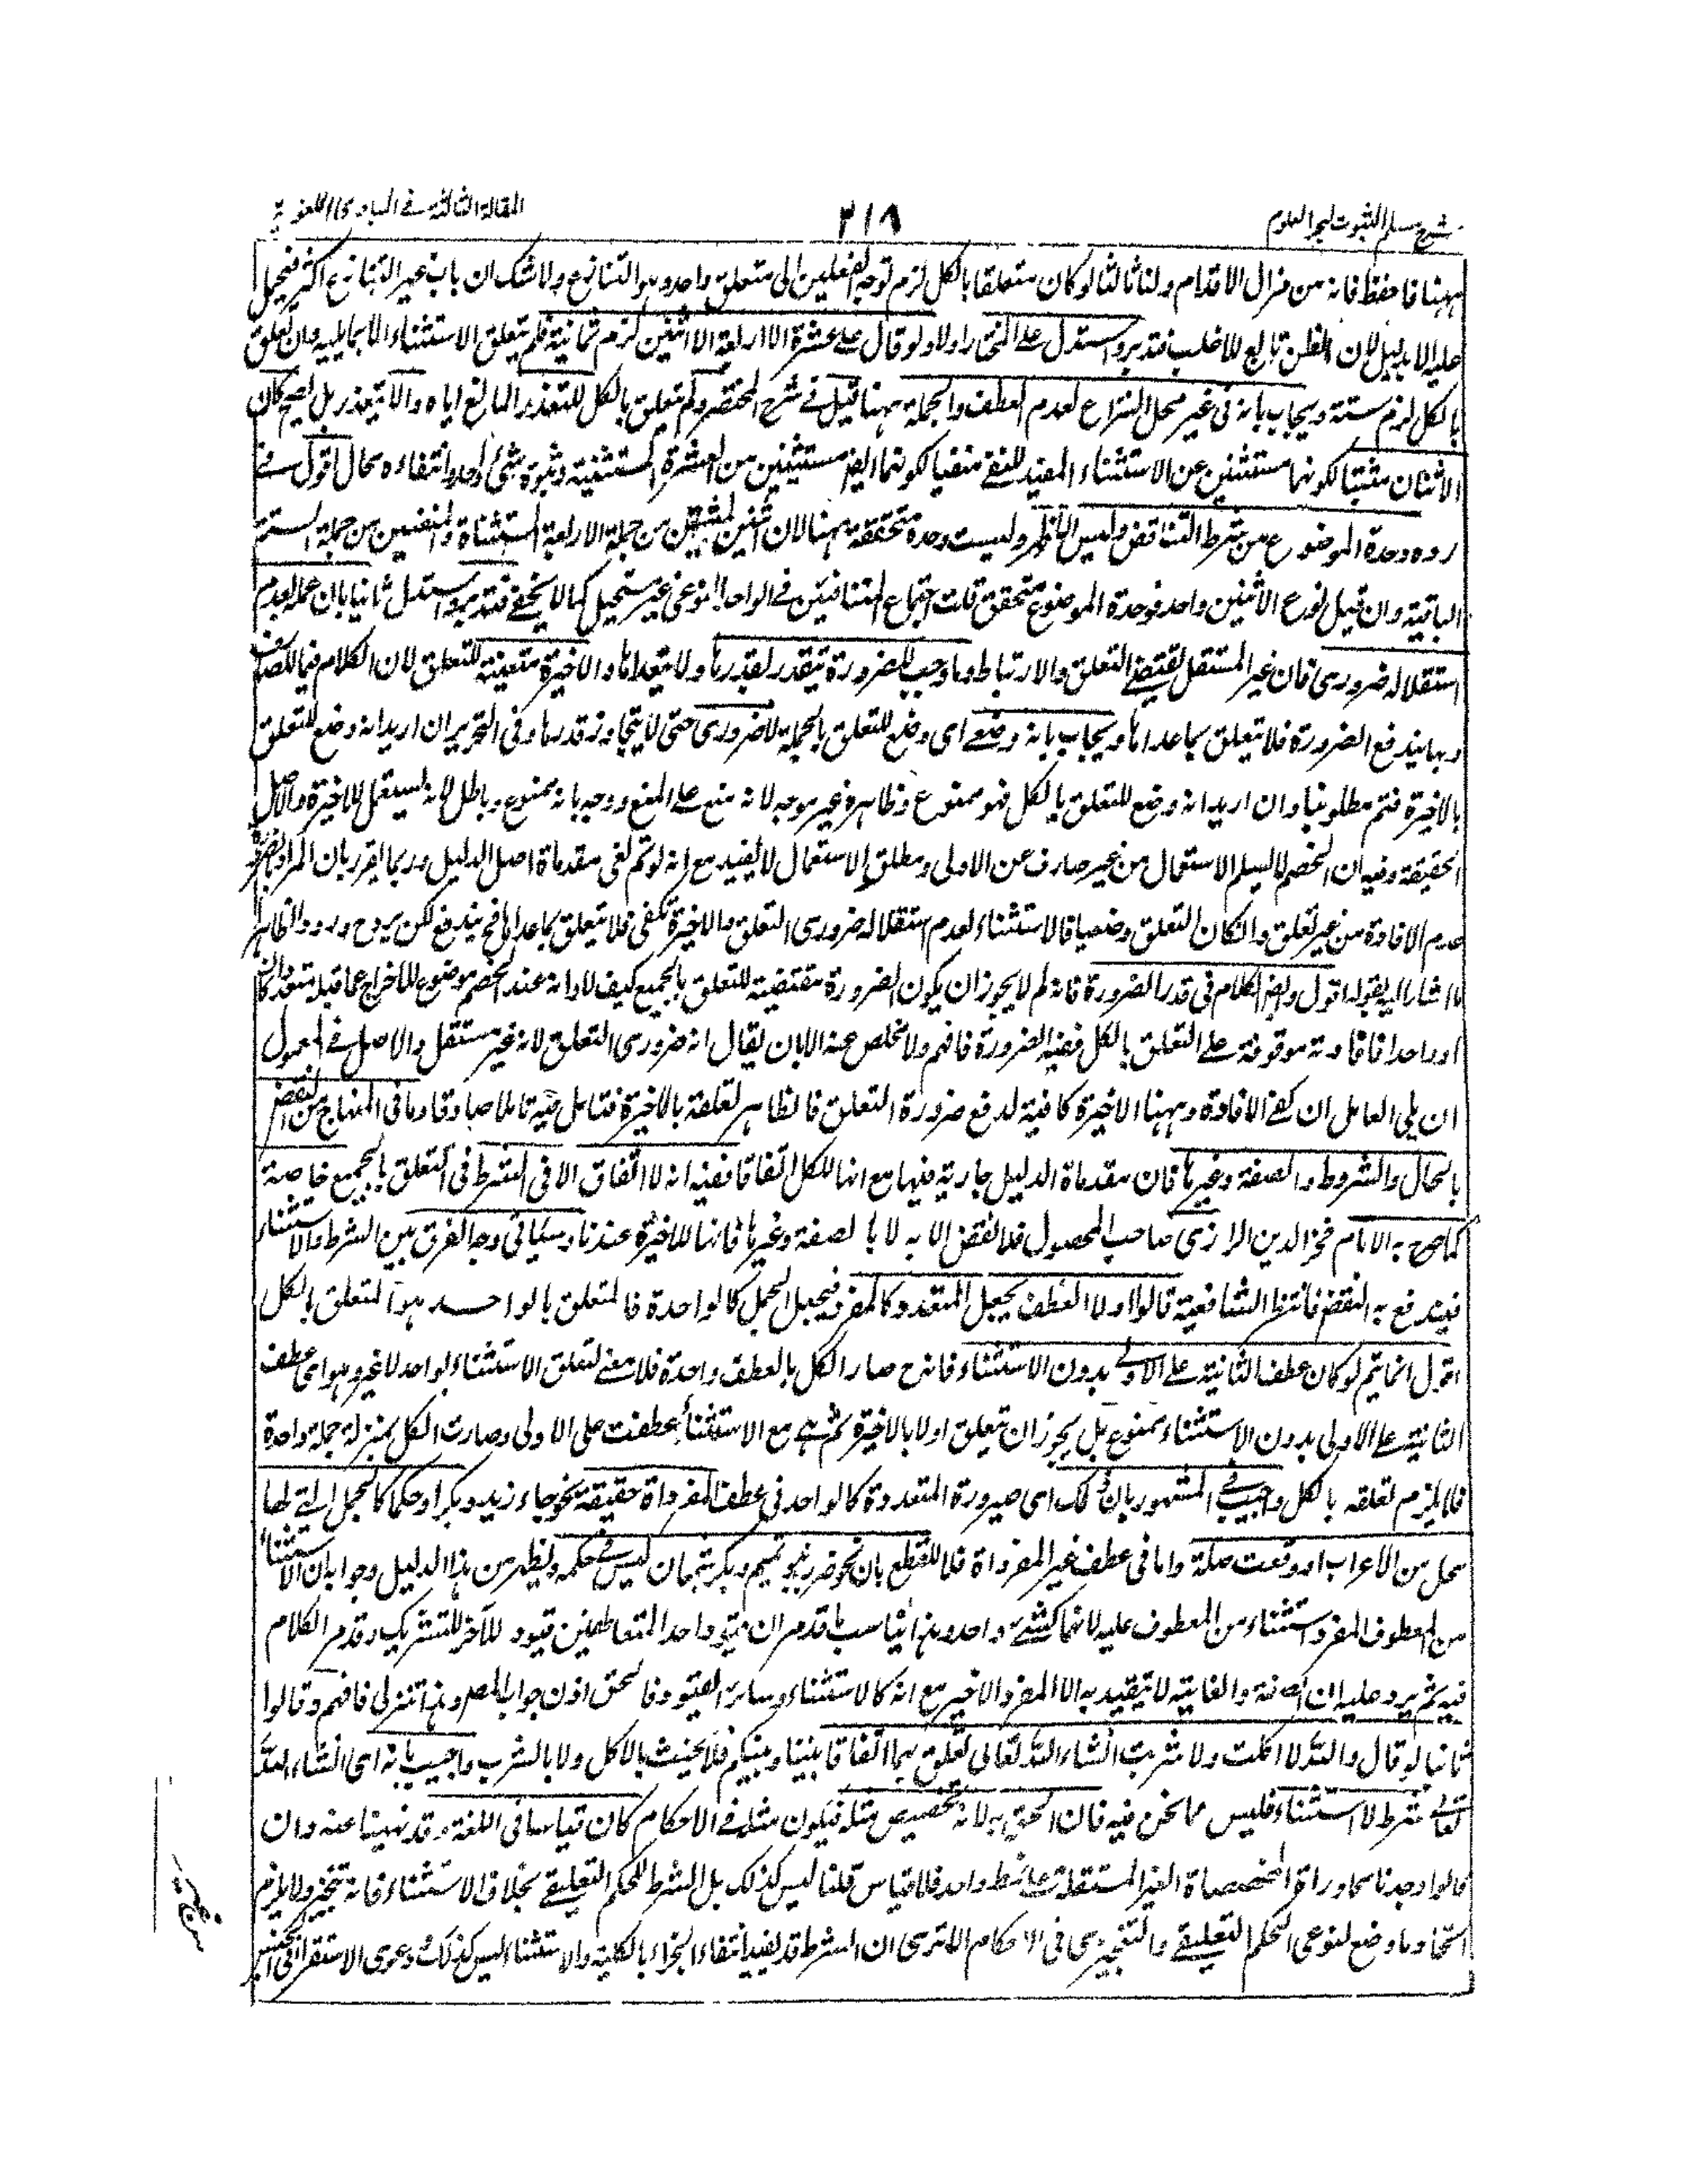 شرح مسلم الثبوت لبحر العلوم
٣١٨
المقالة الثالثة في المبادي اللغوية
ههنا فاحفظ فانه من مزال الاقدام ولنا ثالثا لو كان متعلقا بالكل لزم توجه الفعلين الى متعلق واحد وهو التنازع ولا شك ان باب غير التنازع اكثر فيحمل
عليه الا بدليل لان الظن تابع للاغلب فتدبر واستدل على المختار اولا ولو قال علي عشرة الا اربعة الا اثنين لزم ثمانية فلم يتعلق الاستثناء الا بما يليه وان تعلق
بالكل لزم ستة ويجاب بانه في غير محل النزاع لعدم العطف والجملة ههنا قيل في شرح المختصر ولم يتعلق بالكل للتعذر المانع اياه والا يتعذر بل لصح كان
الاثنان مثبتا لكونهما مستثنين عن الاستثناء المفيد للنفي منفيا لكونهما ايضا مستثنيين من العشرة المستثنية وثبوة شئ واحد وانتفاءه محال اقول في
رده وحدة الموضوع من شرط التناقض وليس الظهر وليست وحدة متحققة ههنا لان اثنين المثبتين من جملة الاربعة المستثناة والمنفيين من جملة الستة
الباقية وان قيل نوع الاثنين واحد فوحدة الموضوع متحقق قلت اجتماع المتنافيين في الواحد النوعي غير مستحيل كما لا يخفى فتدبر واستدل ثانيا بان عمله لعدم
استقلاله ضروري فان غير المستقل يقتضي التعلق والارتباط وما وجب للضرورة يتقدر بقدرها ولا يتعداها والاخيرة متعينة للتعلق لان الكلام فيما للصارف
وبها يندفع الضرورة فلا يتعلق بما عداها ويجاب بانه وضعي اي وضع للتعلق بالجملة لا ضروري حتى لا يتجاوز قدرها وفي التحرير ان اريد انه وضع للتعلق
بالاخيرة فتم مطلوبنا وان اريد انه وضع للتعلق بالكل فهو ممنوع وظاهره غير موجه لانه منع على المنع ووجه بانه ممنوع وباطل لانه يستعمل للاخيرة والاصل
الحقيقة وفيه ان الخصم لا يسلم الاستعمال من غير صارف عن الاولى ومطلق الاستعمال لا يفيد مع انه لو تم لغى مقدماة اصل الدليل وربما يقرر بان المراد بالضرورة
عدم الافادة من غير تعلق وان كان التعلق وضعيا فالاستثناء لعدم استقلاله ضروري التعلق والاخيرة تكفى فلا يتعلق بما عداها فح يندفع لكن يروح ورود الظاهر
ما اشار اليه بقوله اقول وايضا الكلام في قدر الضرورة فانه لم لا يجوز ان يكون الضرورة مقتضية للتعلق بالجميع كيف لا وانه عند الخصم موضوع للاخراج عما قبله متعددا كان
او واحدا فافادته موقوفة على التعلق بالكل ففيه الضرورة فافهم ولا مخلص عنه الا بان يقال انه ضروري التعلق لانه غير مستقل والاصل في المعمول
ان يلي العامل ان كفى الافادة وههنا الاخيرة كافية لدفع ضرورة التعلق فالظاهر تعلقه بالاخيرة فتامل فيه تاملا صادقا وما في المنهاج من النقض
بالحال والشروط والصفة وغيرها فان مقدماة الدليل جارية فيها مع انها للكل اتفاقا ففيه انه لا اتفاق الا في الشرط في التعلق بالجميع خاصة
كما صرح به الامام فخر الدين الرازي صاحب المحصول فلا نقض الا به لا بالصفة وغيرها فانها للاخيرة عندنا وسياتي وجه الفرق بين الشرط والاستثناء
فيندفع به النقض فانتظر الشافعية قالوا اولا العطف يجعل المتعدد كالمفرد فيجعل الجمل كالواحدة فالمتعلق بالواحد هو المتعلق بالكل
اقول انما يتم لو كان عطف الثانية على الاولى بدون الاستثناء فانه ح صار الكل بالعطف واحدة فلا معنى لتعلق الاستثناء بواحد لا غير وهو اي عطف
الثانية على الاولى بدون الاستثناء ممنوع بل يجوز ان تعلق اولا بالاخيرة ثم هي مع الاستثناء عطفت على الاولى وصارت الكل بمنزلة جملة واحدة
فلا يلزم تعلقه بالكل واجيب في المشهور بان ذلك اي صيرورة المتعددة كالواحد في عطف المفرداة حقيقة نحو جاء زيد وبكر او حكما كالجمل التي لها
محل من الاعراب او وقعت صلة واما في عطف غير المفرداة فلا للقطع بان نحو ضرب بنو تميم وبكر شجعان ليس في حكمه ويظهر من هذا الدليل وجوابه ان الاستثناء
من المعطوف المفرد استثناء من المعطوف عليه لانهما كشئ واحد وهذا يناسب ما قدم ان قيود احد المتعاطفين قيود للآخر للتشريك وقد مر الكلام
فيه ثم يرد عليه ان الصفة والغاية لا يتقيد به الا المفرد الاخير مع انه كالاستثناء وسائر القيود فالحق اذن جواب المصر وهذا تنزلي فافهم وقالوا
ثانيا لو قال والله لا اكلت ولا شربت انشاء الله تعالى تعلق بهما اتفاقا بيننا وبينكم فلا يحنث بالاكل ولا بالشرب واجيب بانه اي انشاء الله
تعالى شرط لا استثناء فليس مما نحن فيه فان الحق به لانه تخصيص مثله فيكون مثله في الاحكام كان قياسا في اللغة وقد نهينا عنه وان
قالوا وجدنا محاوراة المخصصاة الغير المستقلة على نمط واحد فلا قياس قلنا ليس كذلك بل الشرط للحكم التعليقي بخلاف الاستثناء فانه تنجيز ولا يلزم
اتحاد ما وضع لنوعي الحكم التعليقي والتنجيزي في الاحكام الا ترى ان الشرط قد يفيد انتفاء الجزاء بالكلية والاستثناء ليس كذلك ودعوى الاستقراء في الجنس